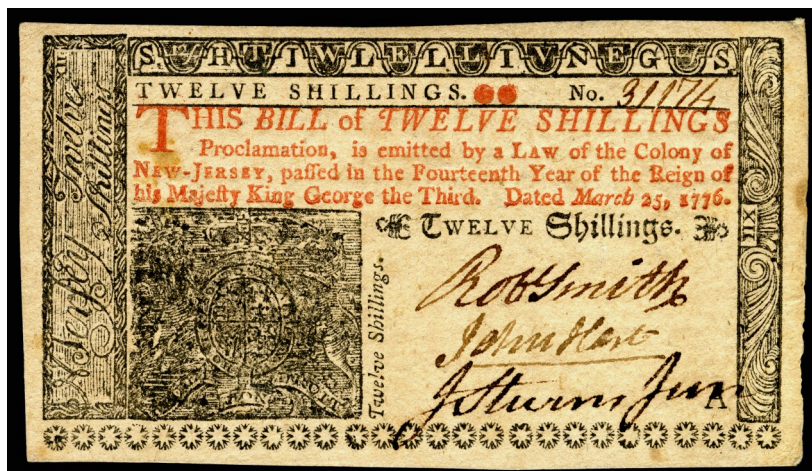 S H T I W L E L L I V N E G S
TWELVE SHILLINGS. No. 31174
THIS BILL of TWELVE SHILLINGS
Proclamation, is emitted by a LAW of the Colony of
NEW-JERSEY, paſſed in the Fourteenth Year of the Reign of
his Majeſty King George the Third. Dated March 25, 1776.
TWELVE Shillings.
Jerſey Twelve
Shillings
Twelve Shillings.
XII
Rob Smith
John Hart
J Stevens Jun
A